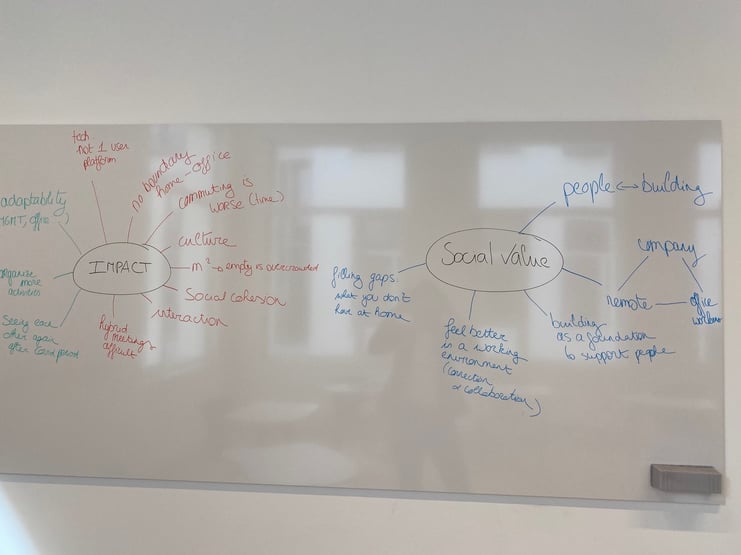 tech
not 1 user
platform
no boundary
home-office
commuting is
worse (time)
culture
m² → empty is overcrowded
Social cohesion
interaction
hybrid
meetings
difficult
adaptability
organize
more
activities
Seeing each
other again
after Covid period
IMPACT
Social Value
people ↔ building
company
remote
office
workers
building
as a foundation
to support people
feel better
in a working
environment
(connection
& collaboration)
filling gaps
what you don't
have at home